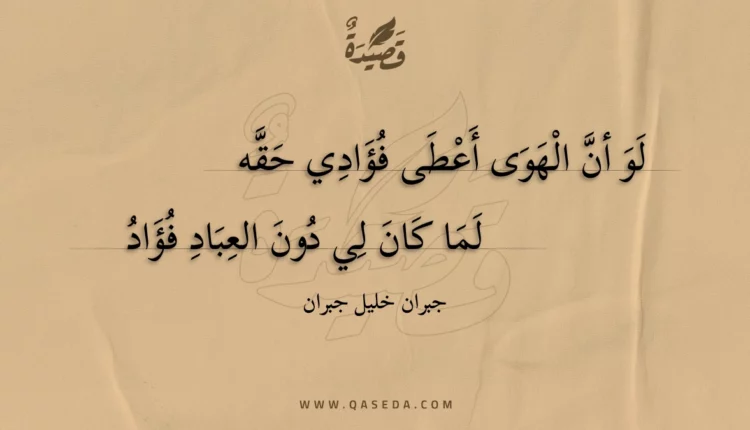 قَصِيدَةٌ
لَوَ أنَّ الْهَوَى أَعْطَى فُؤَادِي حَقَّه
لَمَا كَانَ لِي دُونَ العِبَادِ فُؤَادُ
جبران خليل جبران
WWW.QASEDA.COM